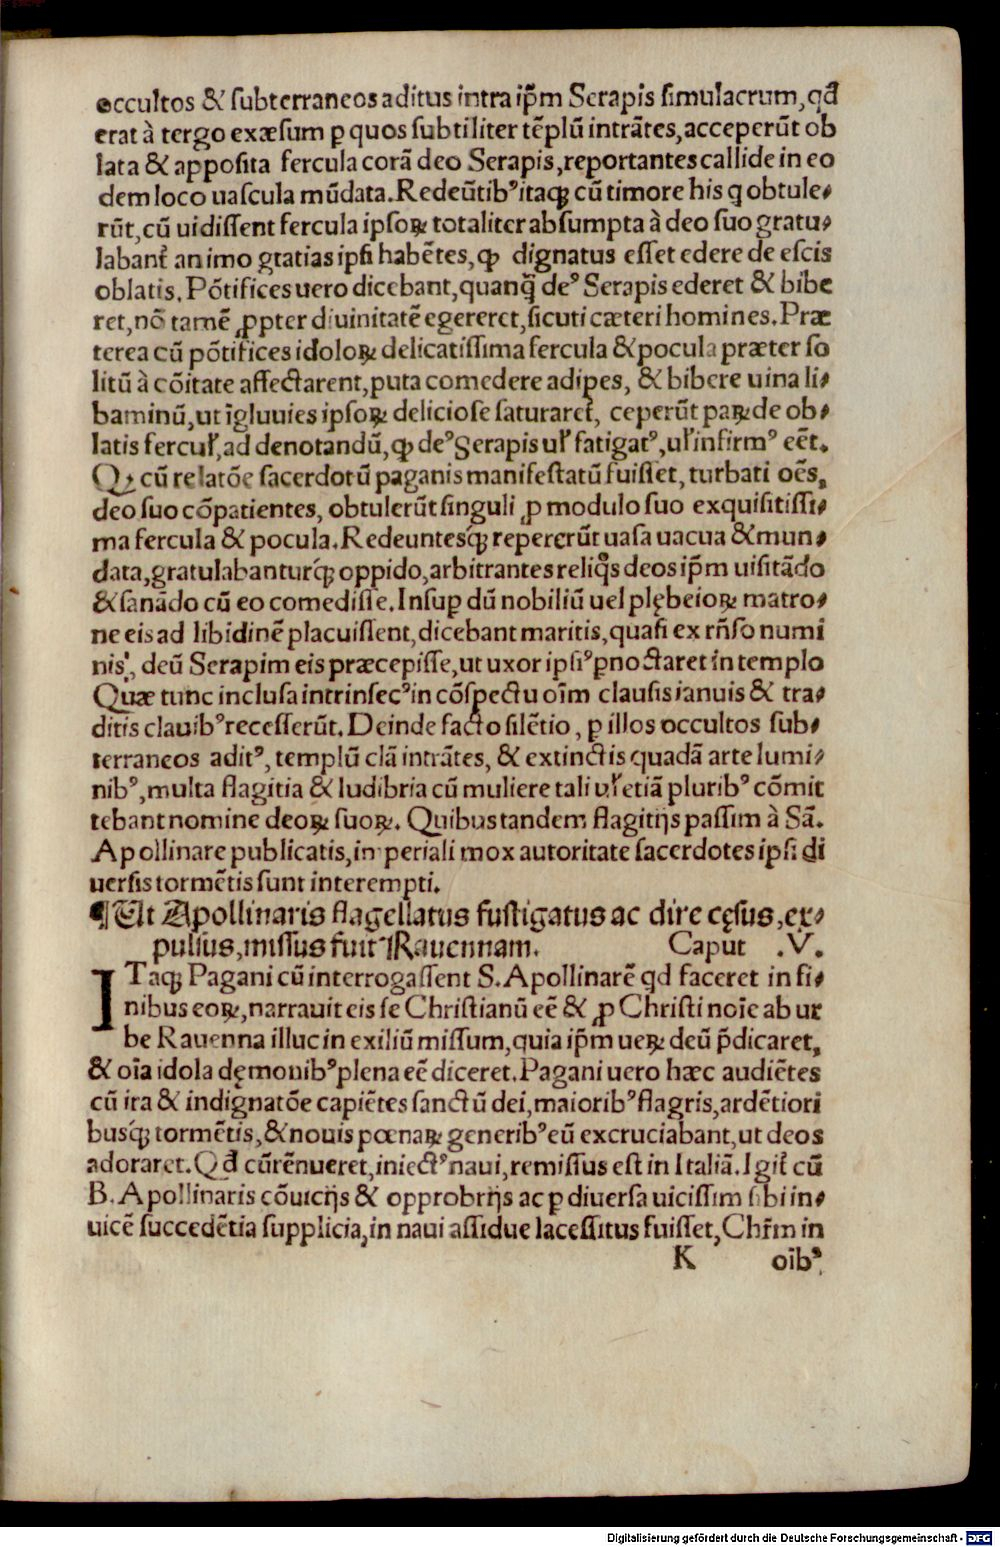 occultos & subterraneos aditus intra ip̄m Serapis simulacrum, qđ
erat à tergo exæsum ꝑ quos subtiliter tēplū intrātes, acceperūt ob
lata & apposita fercula corā deo Serapis, reportantes callide in eo
dem loco uascula mūdata. Redeūtibꝰ itaqꝫ cū timore his q obtule⸗
rūt, cū uidissent fercula ipsoꝝ totaliter absumpta à deo suo gratu⸗
labant᷑ animo gratias ipsi habētes, ꝙ dignatus esset edere de escis
oblatis. Pōtifices uero dicebant, quanq̄ deꝰ Serapis ederet & bibe
ret, nō tamē ꝓpter diuinitatē egereret, sicuti cæteri homines. Præ
terea cū pōtifices idoloꝝ delicatissima fercula & pocula præter so
litū à cōitate affectarent, puta comedere adipes, & bibere uina li⸗
baminū, ut īgluuies ipsoꝝ deliciose saturaret᷑, ceperūt paꝝ de ob⸗
latis fercuł, ad denotandū, ꝙ deꝰ Serapis uł fatigatꝰ, uł infirmꝰ eēt.
Qꝫ cū relatōe sacerdotū paganis manifestatū fuisset, turbati oēs,
deo suo cōpatientes, obtulerūt singuli ꝓ modulo suo exquisitissi⸗
ma fercula & pocula. Redeuntesqꝫ repererūt uasa uacua & mun⸗
data, gratulabanturqꝫ oppido, arbitrantes reliq̊s deos ip̄m uisitādo
& sanādo cū eo comedisse. Insuꝑ dū nobiliū uel plębeioꝝ matro⸗
ne eis ad libidinē placuissent, dicebant maritis, quasi ex rn̄so numi
nis, deū Serapim eis præcepisse, ut uxor ipsiꝰ ꝑnoctaret in templo
Quæ tunc inclusa intrinsecꝰ in cōspectu oīm clausis ianuis & tra⸗
ditis clauibꝰ recesserūt. Deinde facto silētio, ꝑ illos occultos sub⸗
terraneos aditꝰ, templū clā intrātes, & extinctis quadā arte lumi⸗
nibꝰ, multa flagitia & ludibria cū muliere tali uł etiā pluribꝰ cōmit
tebant nomine deoꝝ suoꝝ. Quibus tandem flagitijs passim à Sā.
Apollinare publicatis, imperiali mox autoritate sacerdotes ipsi di
uersis tormētis sunt interempti.
¶ Ut Apollinaris flagellatus fustigatus ac dire cęsus, ex⸗
pulsus, missus fuit Rauennam. Caput .V.
ITaqꝫ Pagani cū interrogassent S. Apollinarē qd faceret in fi⸗
nibus eoꝝ, narrauit eis se Christianū eē & ꝓ Christi noīe ab ur
be Rauenna illuc in exiliū missum, quia ip̄m ueꝝ deū p̄dicaret,
& oīa idola dęmonibꝰ plena eē diceret. Pagani uero hæc audiētes
cū ira & indignatōe capiētes sanctū dei, maioribꝰ flagris, ardētiori
busqꝫ tormētis, & nouis pœnaꝝ generibꝰ eū excruciabant, ut deos
adoraret. Qđ cū rēnueret, iniectꝰ naui, remissus est in Italiā. Igit᷑ cū
B. Apollinaris cōuicijs & opprobrijs ac ꝑ diuersa uicissim sibi in⸗
uicē succedētia supplicia, in naui assidue lacessitus fuisset, Chr̄m in
K oībꝰ
Digitalisierung gefördert durch die Deutsche Forschungsgemeinschaft - DFG